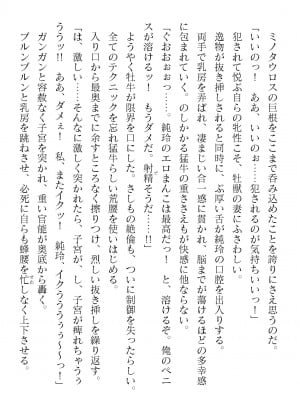 ミノタウロスの巨根をここまで呑み込めたことを誇りにさえ思うのだ。
「いいのっ！　ああ　いいのぉ……犯されるのが気持ちいいっ！」
犯されて悦ぶ自らの牝性こそ、牡獣の妻にふさわしい。
逸物が抜き挿しされると同時に、ぶ厚い舌が純玲の口腔を出入りする。
両手で乳房を弄ばれ、凄まじい合一感に貫かれ、脳までが蕩けるほどの多幸感
に包まれていく。のしかかる猛牛の重ささえもが快感に他ならない。
「ぐおおおぉっ……。純玲のエロまんこは最高だっ！　と、溶けるぞ。俺のペニ
スが溶けるッ！　もうダメだ。射精そうだ……‼」
ようやく牡牛が限界を口にした。さしもの絶倫も、ついに制御を失ったらしい。
全てのテクニックを忘れ猛牛らしい荒腰を使いはじめる。
入り口から最奥までに余すところなく擦りつけ、烈しい抜き挿しを繰り返す
「は、激しい……そんなに激しく突かれたら、子宮が、し、子宮が痺れちゃうぅ
ううッ‼　ああ、ダメぇ！　私、またイクッ！　純玲、イクうううぅぅ～～っ！」
ガンガンと容赦なく子宮を突かれ、重い官能が奥底から轟く。
ブルンブルンと乳房を跳ねさせ、必死に自らも蜂腰を忙しなく上下させる。